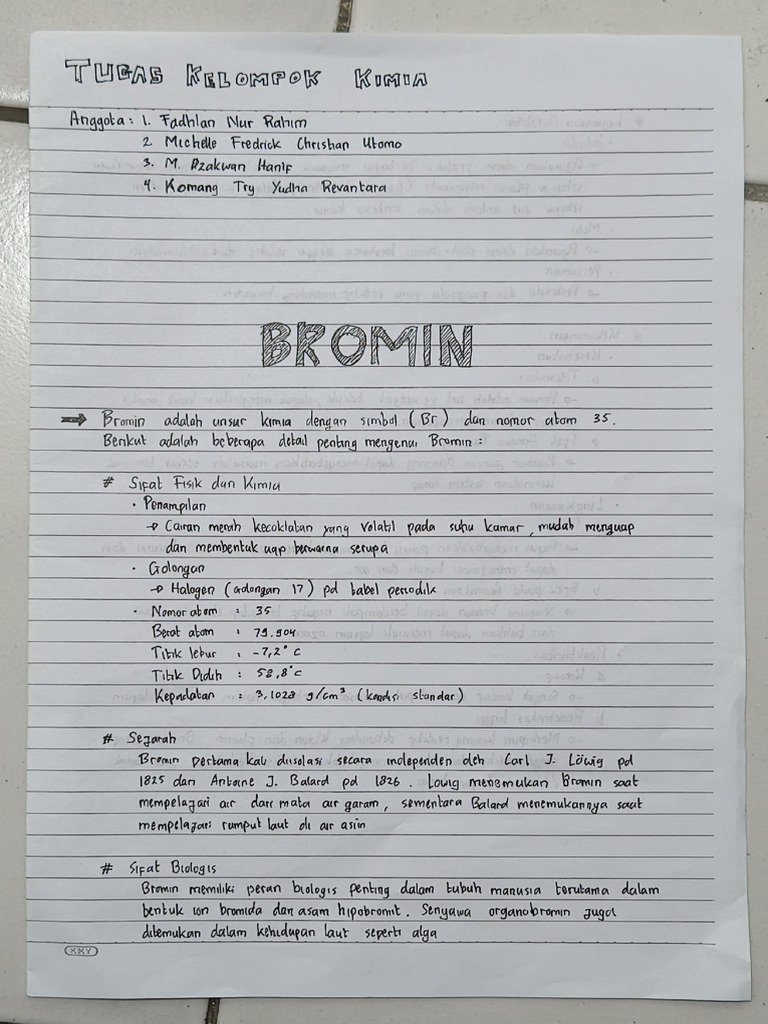 TUGAS KELOMPOK KIMIA
Anggota : 1. Fadhlan Nur Rahim
2. Michelle Fredrick Christian Utomo
3. M. Dzakwan Hanif
4. Komang Try Yudha Revantara
BROMIN
→ Bromin adalah unsur kimia dengan simbol (Br) dan nomor atom 35.
Berikut adalah beberapa detail penting mengenai Bromin :
# Sifat Fisik dan Kimia
· Penampilan
→ Cairan merah kecoklatan yang volatil pada suhu kamar, mudah menguap
dan membentuk uap berwarna serupa
· Golongan
→ Halogen (Golongan 17) pd tabel periodik
· Nomor atom : 35
Berat atom : 79.904
Titik lebur : -7,2°C
Titik Didih : 58,8°C
Kepadatan : 3,1028 g/cm³ (kondisi standar)
# Sejarah
Bromin pertama kali diisolasi secara independen oleh Carl J. Löwig pd
1825 dan Antoine J. Balard pd 1826. Lowig menemukan Bromin saat
mempelajari air dari mata air garam, sementara Balard menemukannya saat
mempelajari rumput laut di air asin
# Sifat Biologis
Bromin memiliki peran biologis penting dalam tubuh manusia terutama dalam
bentuk ion bromida dan asam hipobromit. Senyawa organobromin juga
ditemukan dalam kehidupan laut seperti alga
KKY